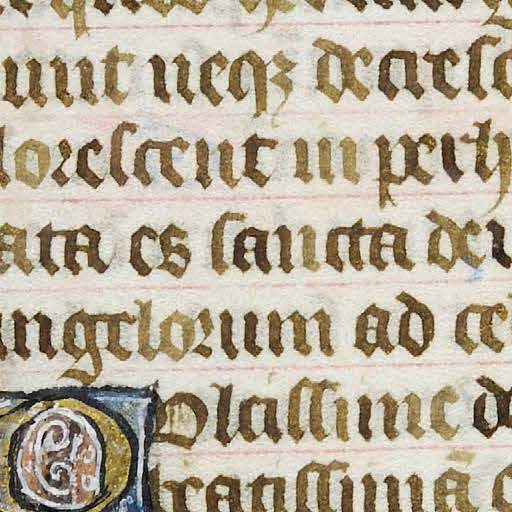 unt neqꝫ decresc
lorescent in perh
ata es sancta dei
angelorum ad ce
O Olcissime d
beatissimā